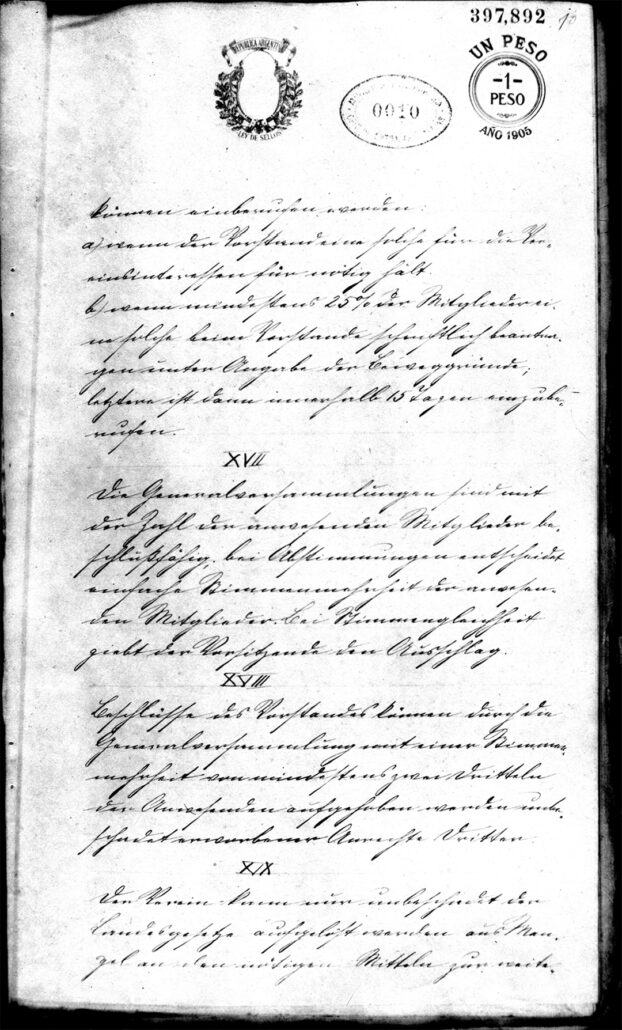 397,892
10
REPUBLICA ARGENTINA
LEY DE SELLOS
0010
UN PESO
-1-
PESO
AÑO 1905
können einberufen werden:
a) wenn der Vorstand eine solche für die Ver-
einsinteressen für nötig hält.
b) wenn mindestens 25% der Mitglieder ei-
ne solche beim Vorstande schriftlich beantra-
gen unter Angabe der Beweggründe;
letztere ist dann innerhalb 15 Tagen einzube-
rufen.
XVII
Die Generalversammlungen sind mit
der Zahl der anwesenden Mitglieder be-
schlußfähig; bei Abstimmungen entscheidet
einfache Stimmenmehrheit der anwesen-
den Mitglieder. Bei Stimmengleichheit
giebt der Vorsitzende den Ausschlag.
XVIII
Beschlüsse des Vorstandes können durch die
Generalversammlung mit einer Stimmen-
mehrheit von mindestens zwei Dritteln
der Anwesenden aufgehoben werden unbe-
schadet erworbener Anrechte Dritter.
XIX
Der Verein kann nur unbeschadet der
Landesgesetze aufgelöst werden aus Man-
gel an den nötigen Mitteln zur weite-